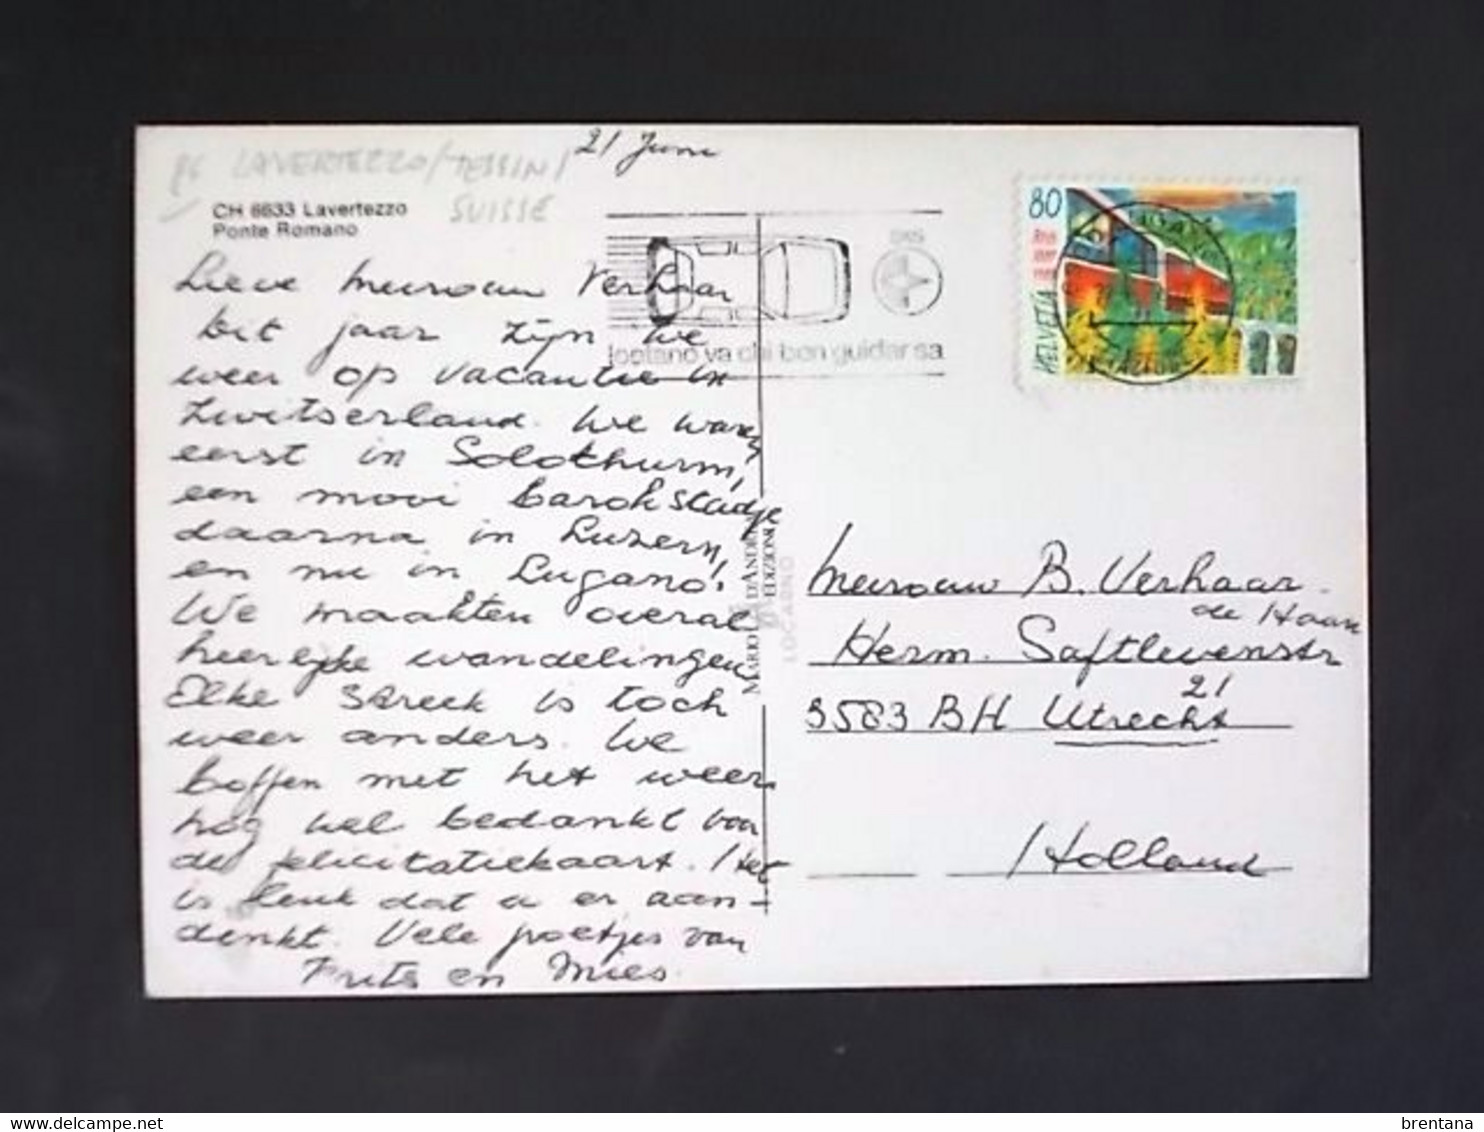 21 Juni
LAVERTEZZO/TESSIN/
SUISSE
CH 6633 Lavertezzo
Ponte Romano
Lieve Mevrouw Verhaar
Dit jaar zijn we
weer op vacantie in
Zwitserland. We waren
eerst in Solothurn,
een mooi barokstadje
daarna in Luzern,
en nu in Lugano.
We maakten overal
heerlijke wandelingen
Elke streek is toch
weer anders. We
boffen met het weer.
Nog wel bedankt voor
de felicitatiekaart. Het
is leuk dat u er aan-
denkt. Vele groetjes van
Frits en Mies.
lontano va chi ben guidar sa
80
HELVETIA
MARIO D'ANDREA
EDIZIONI
LOCARNO
Mevrouw B. Verhaar
de Haan
Herm. Saftlevenstr
21
3583 BH Utrecht
Holland
brentana